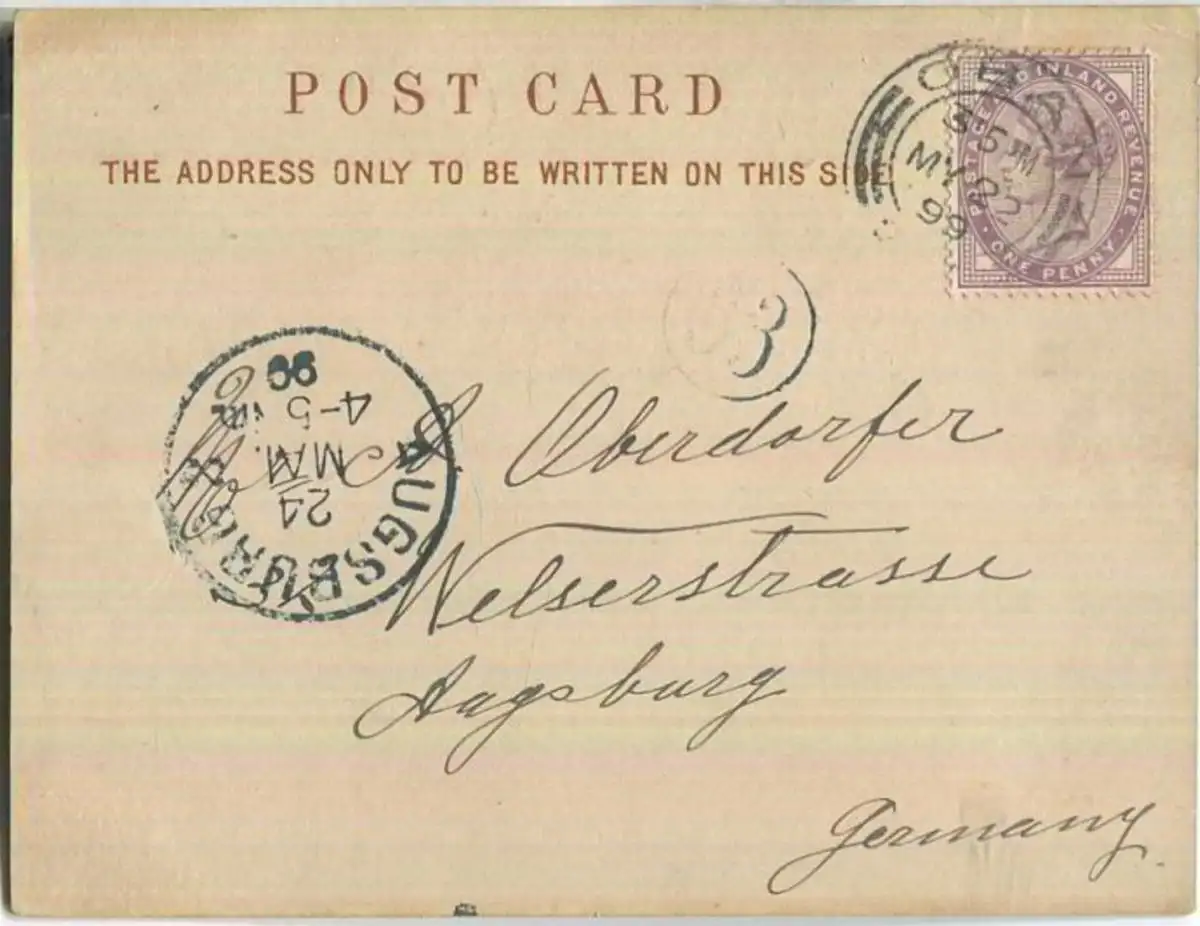 POST CARD
THE ADDRESS ONLY TO BE WRITTEN ON THIS SIDE
POSTAGE AND INLAND REVENUE
ONE PENNY
MY 22
99
3
AUGSBURG
24
MAI
4-5
99
Oberdorfer
Welserstrasse
Augsburg
Germany.